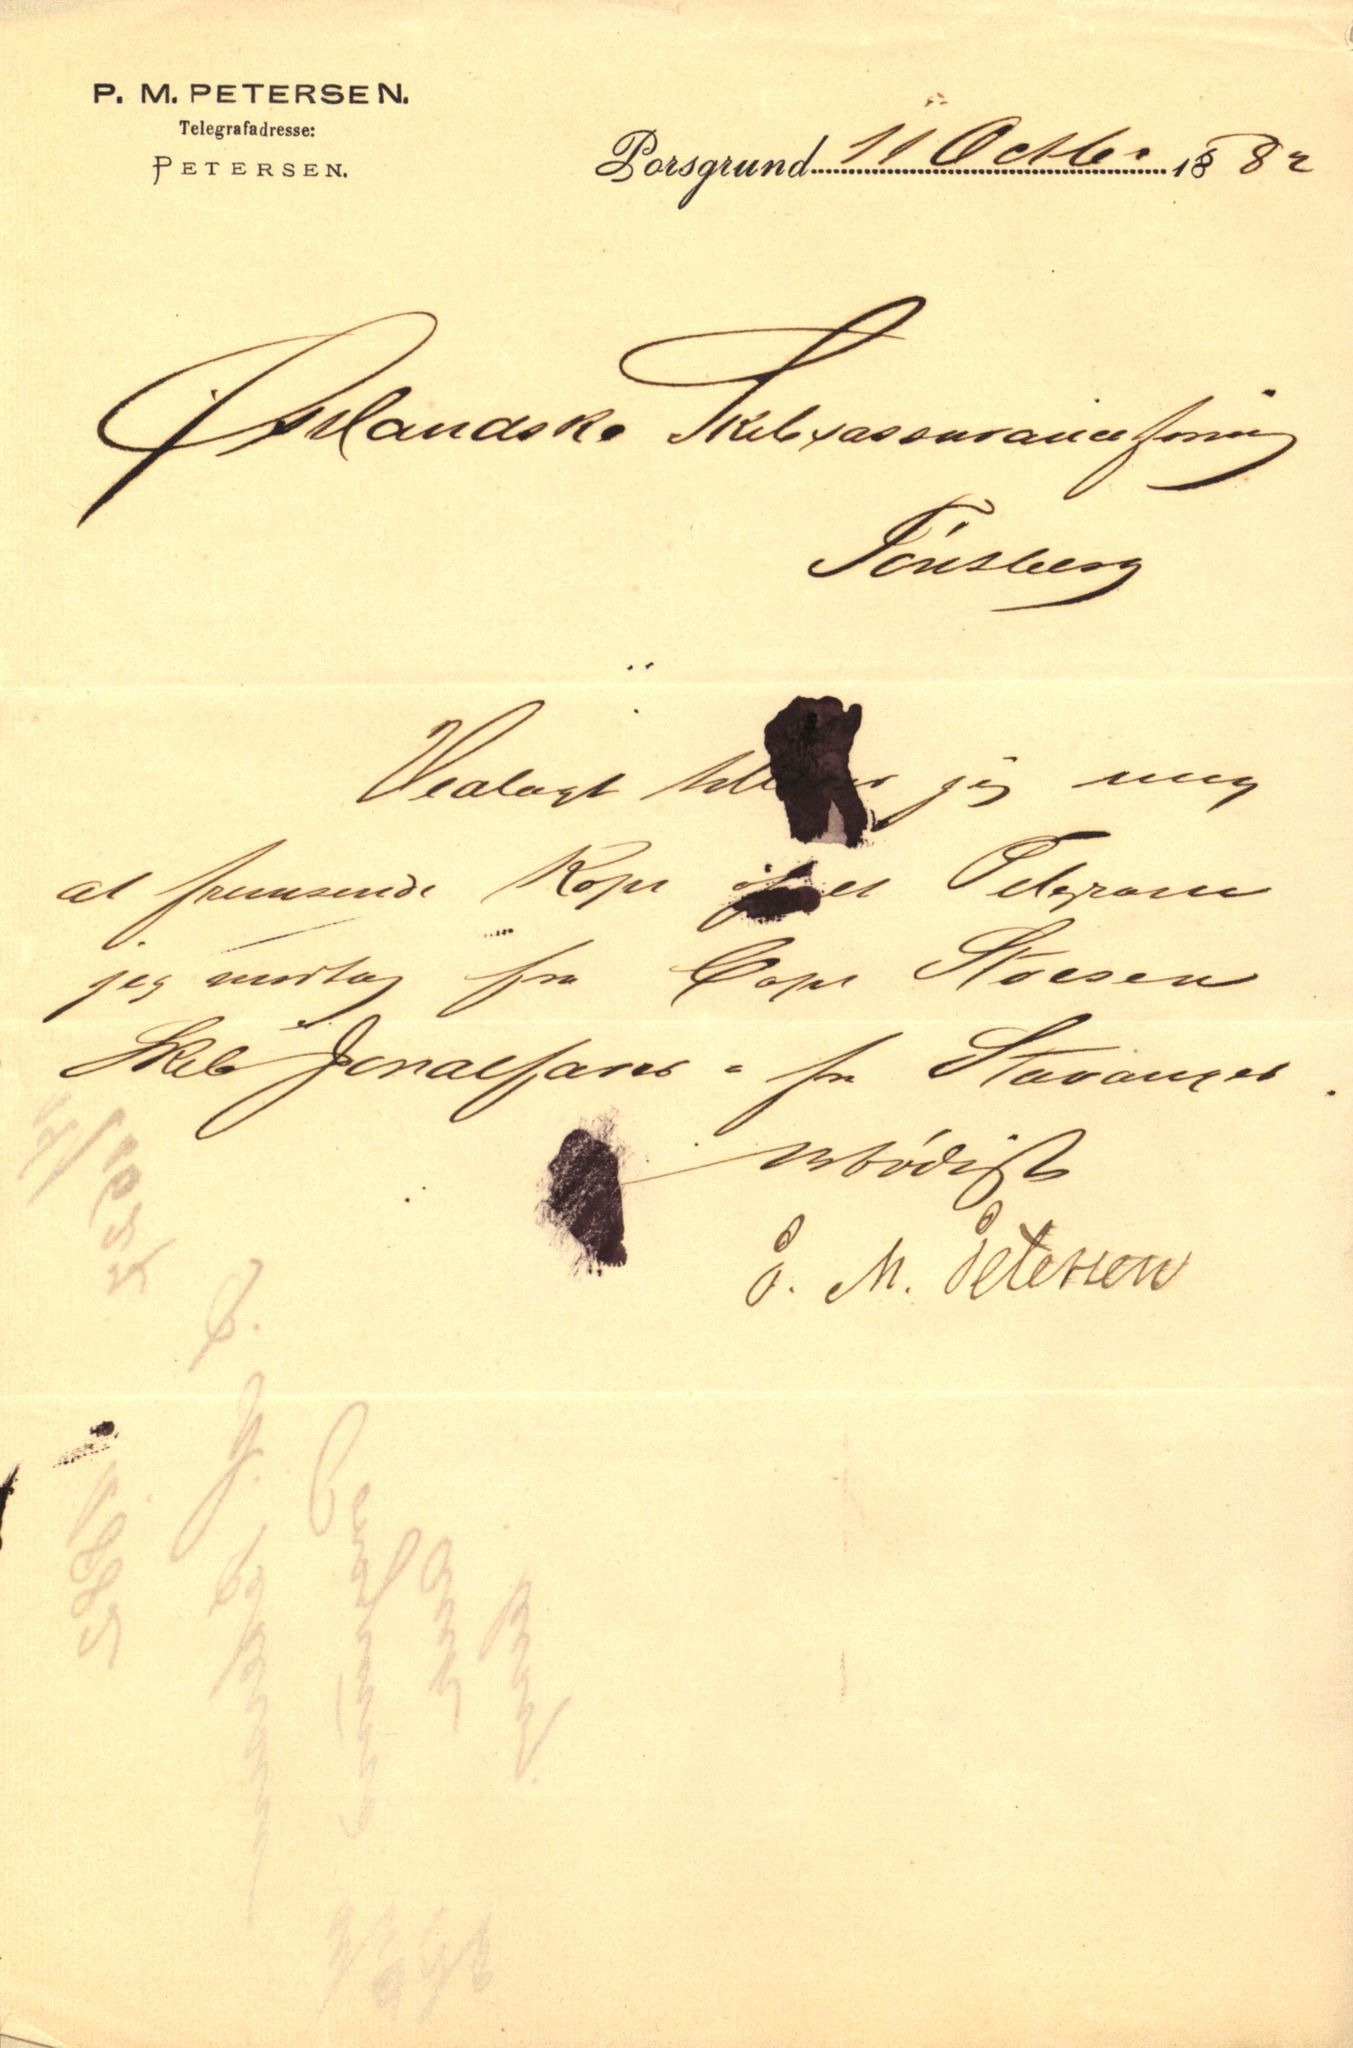 P. M. PETERSEN.
Telegrafadresse:
PETERSEN.
Porsgrund 11 Octbr 1882
Østlandske Skibsassuranceforening
Tönsberg
Vedlagt tillader jeg mig
at fremsende Kopi af et Telegram
jeg modtog fra Capt
Skib fra Stavanger.
Ærbödigst
P. M. Petersen